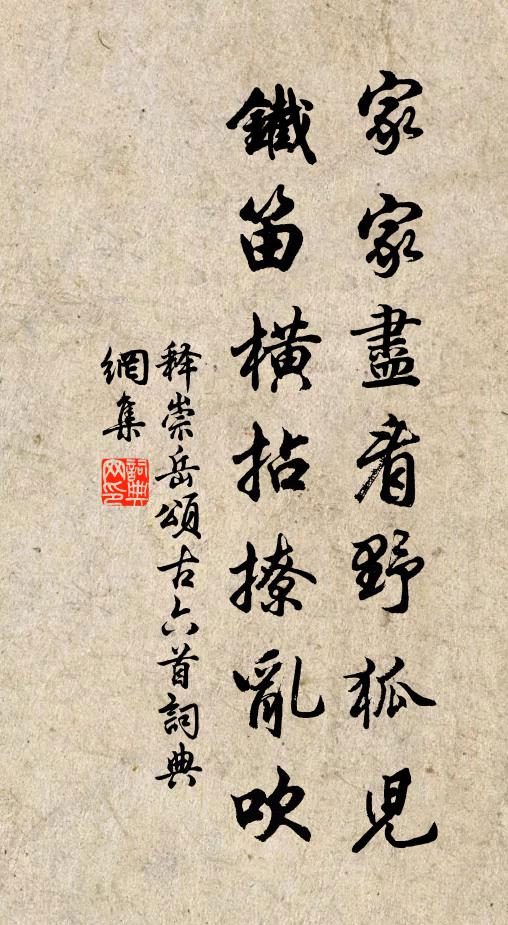 家家盡看野狐児
鐵笛橫拈撩亂吹
释崇岳頌古六首詞典
網集
詞典
网印